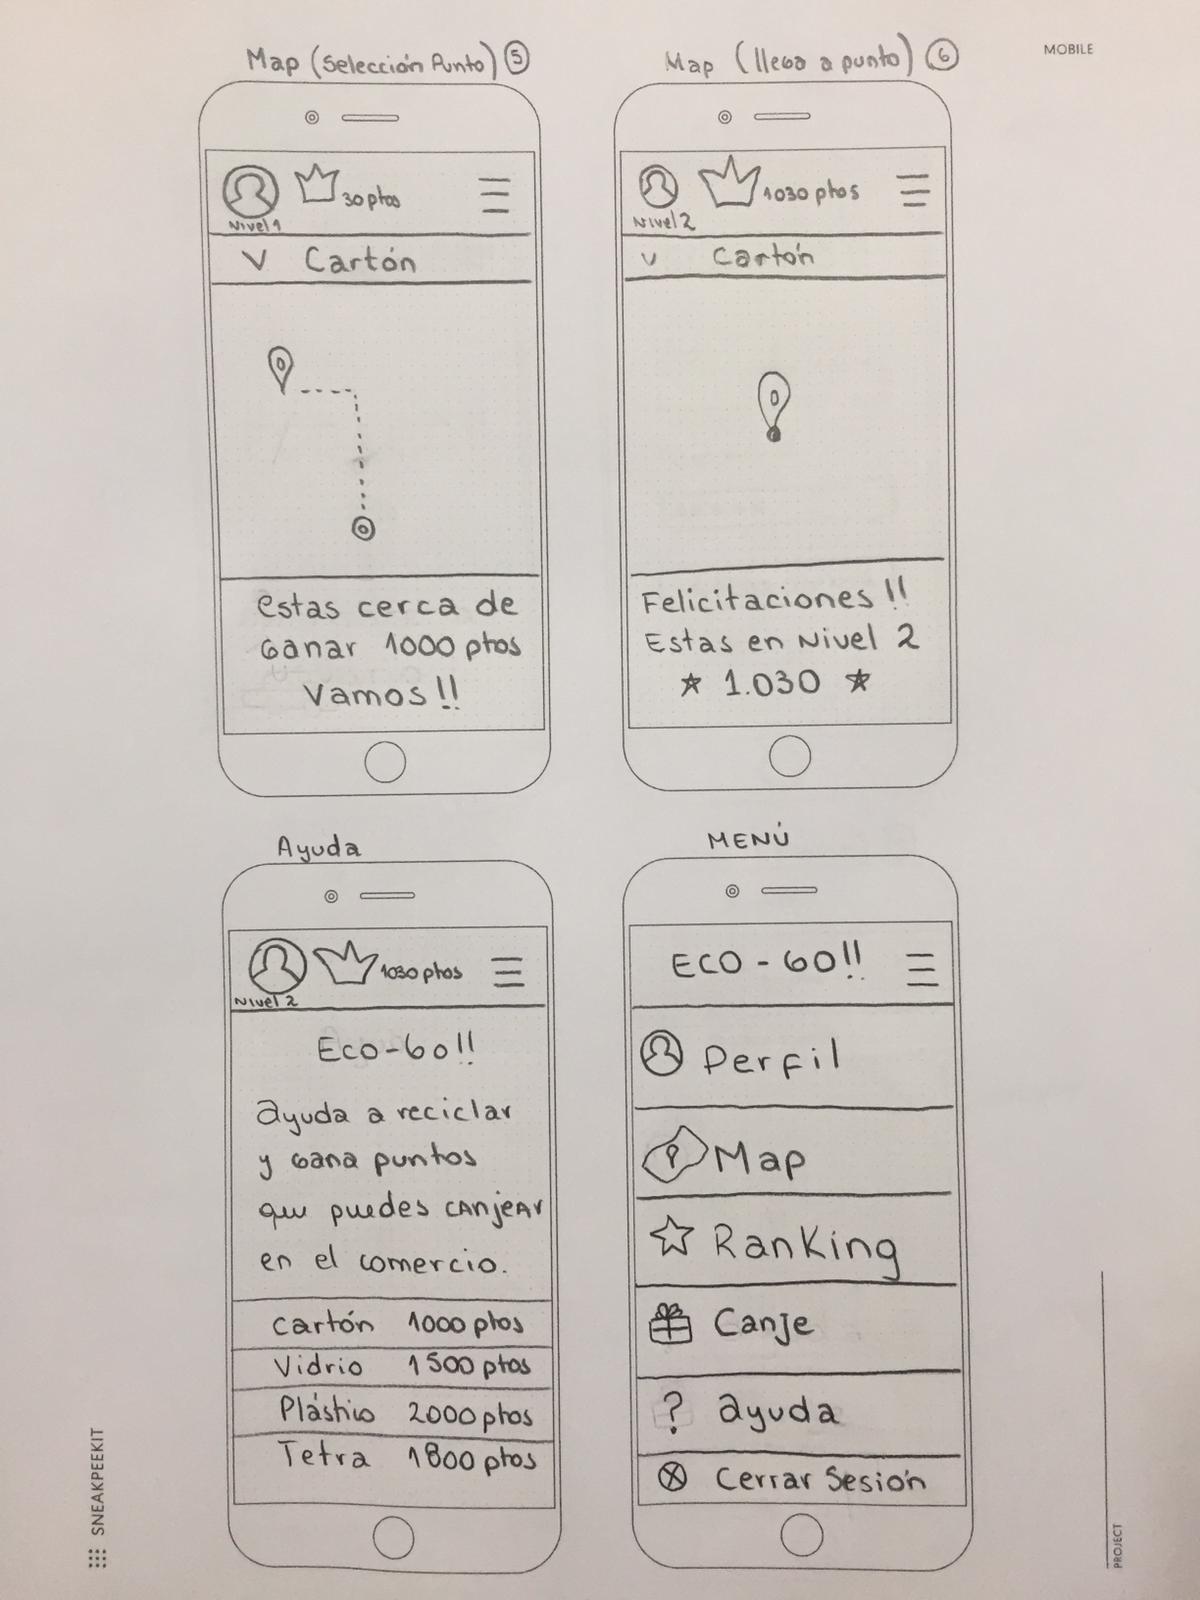 MOBILE
Map (Selección Punto) 5
30 ptos
Nivel 1
V Cartón
Estas cerca de
Ganar 1000 ptos
Vamos!!
Map (llega a punto) 6
1030 ptos
Nivel 2
V Cartón
Felicitaciones!!
Estas en Nivel 2
1.030
Ayuda
1030 ptos
Nivel 2
Eco-Go!!
ayuda a reciclar
y Gana puntos
que puedes CAnjeAr
en el comercio.
cartón 1000 ptos
Vidrio 1500 ptos
Plástico 2000 ptos
Tetra 1800 ptos
MENÚ
ECO-GO!!
Perfil
Map
RanKing
Canje
? ayuda
Cerrar Sesión
SNEAKPEEKIT
PROJECT